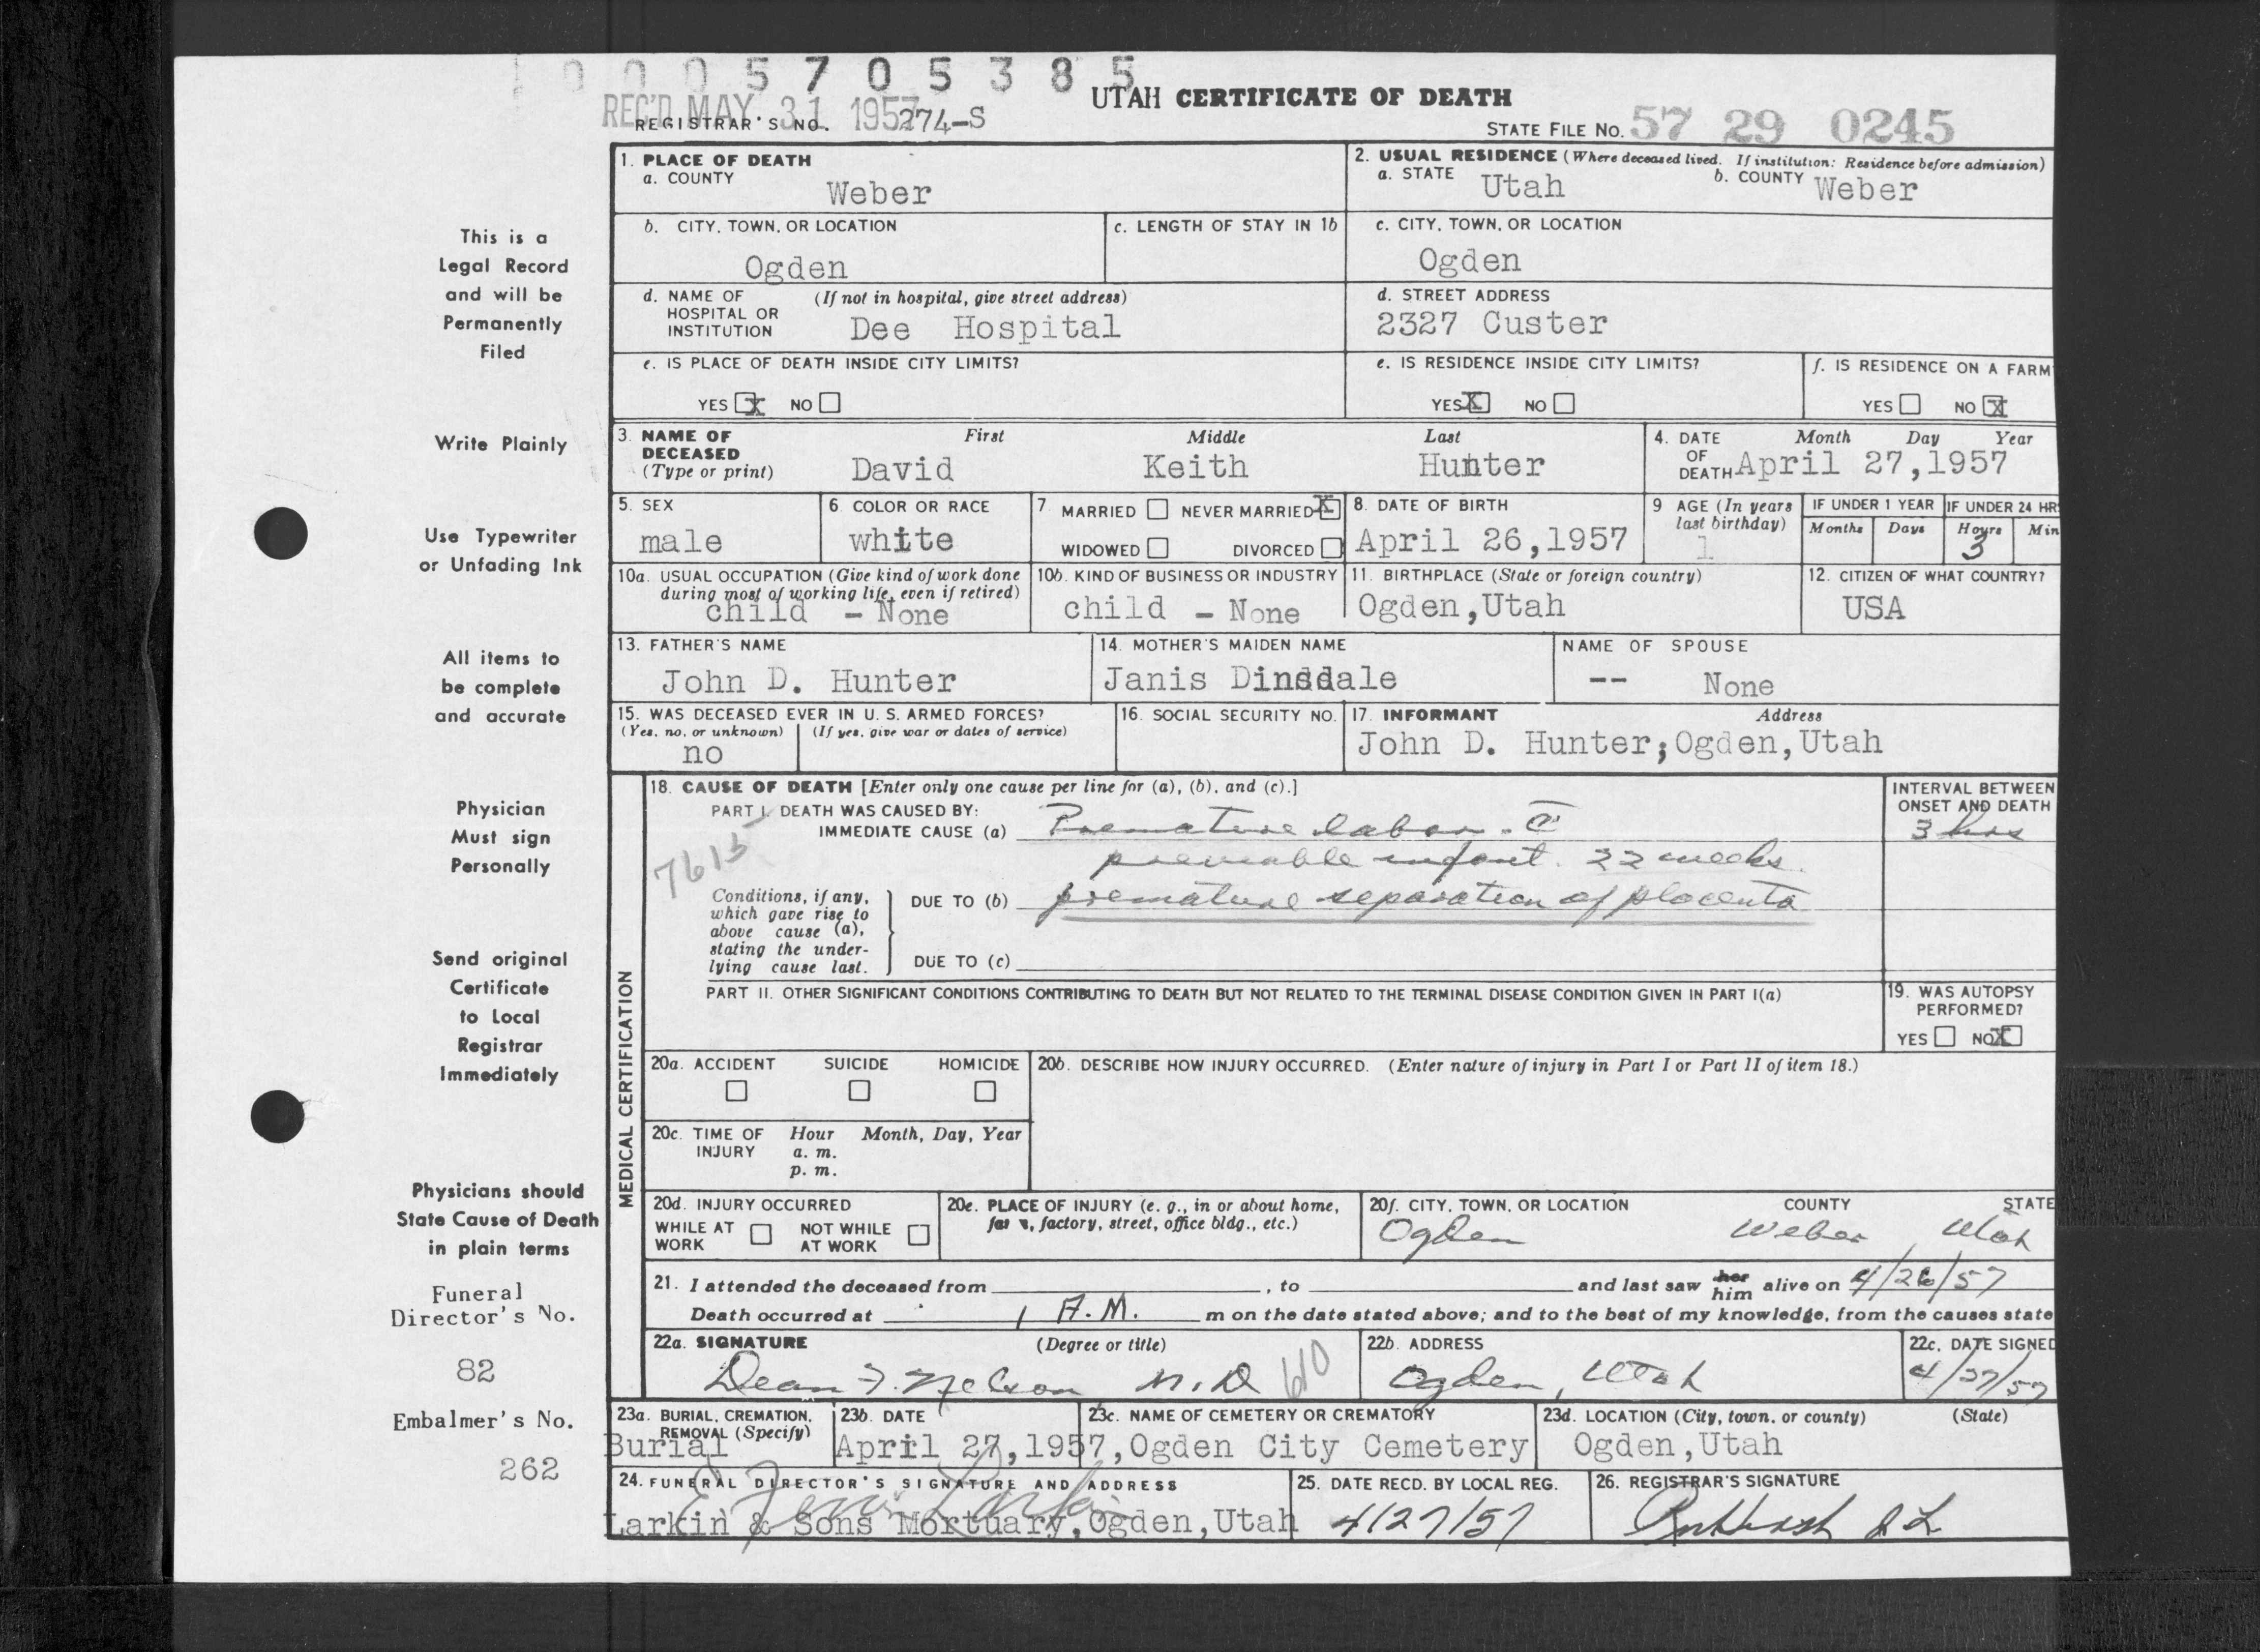 0005705385
REC'D MAY 31 1957
UTAH CERTIFICATE OF DEATH
REGISTRAR'S NO. 274-S
STATE FILE NO. 57 29 0245
1. PLACE OF DEATH
a. COUNTY
Weber
2. USUAL RESIDENCE (Where deceased lived. If institution: Residence before admission)
a. STATE Utah b. COUNTY Weber
b. CITY, TOWN, OR LOCATION
Ogden
c. LENGTH OF STAY IN 1b
c. CITY, TOWN, OR LOCATION
Ogden
d. NAME OF HOSPITAL OR INSTITUTION (If not in hospital, give street address)
Dee Hospital
d. STREET ADDRESS
2327 Custer
e. IS PLACE OF DEATH INSIDE CITY LIMITS?
YES X NO
e. IS RESIDENCE INSIDE CITY LIMITS?
YES X NO
f. IS RESIDENCE ON A FARM
YES NO X
3. NAME OF DECEASED (Type or print)
First Middle Last
David Keith Hunter
4. DATE OF DEATH Month Day Year
April 27,1957
5. SEX
male
6. COLOR OR RACE
white
7. MARRIED NEVER MARRIED X
WIDOWED DIVORCED
8. DATE OF BIRTH
April 26,1957
9 AGE (In years last birthday)
1
IF UNDER 1 YEAR
Months Days
IF UNDER 24 HRS
Hours Min
3
10a. USUAL OCCUPATION (Give kind of work done during most of working life, even if retired)
child - None
10b. KIND OF BUSINESS OR INDUSTRY
child - None
11. BIRTHPLACE (State or foreign country)
Ogden,Utah
12. CITIZEN OF WHAT COUNTRY?
USA
13. FATHER'S NAME
John D. Hunter
14. MOTHER'S MAIDEN NAME
Janis Dinsdale
NAME OF SPOUSE
-- None
15. WAS DECEASED EVER IN U. S. ARMED FORCES?
(Yes, no, or unknown) (If yes, give war or dates of service)
no
16. SOCIAL SECURITY NO.
17. INFORMANT Address
John D. Hunter;Ogden,Utah
MEDICAL CERTIFICATION
18. CAUSE OF DEATH [Enter only one cause per line for (a), (b), and (c).]
INTERVAL BETWEEN ONSET AND DEATH
PART I. DEATH WAS CAUSED BY:
IMMEDIATE CAUSE (a) Premature labor. c̄
3 hrs
7615
previable infant. 22 weeks.
Conditions, if any, which gave rise to above cause (a), stating the underlying cause last.
DUE TO (b) premature separation of placenta
DUE TO (c)
PART II. OTHER SIGNIFICANT CONDITIONS CONTRIBUTING TO DEATH BUT NOT RELATED TO THE TERMINAL DISEASE CONDITION GIVEN IN PART I(a)
19. WAS AUTOPSY PERFORMED?
YES NO X
20a. ACCIDENT SUICIDE HOMICIDE
20b. DESCRIBE HOW INJURY OCCURRED. (Enter nature of injury in Part I or Part II of item 18.)
20c. TIME OF INJURY Hour Month, Day, Year
a. m.
p. m.
20d. INJURY OCCURRED
WHILE AT WORK NOT WHILE AT WORK
20e. PLACE OF INJURY (e. g., in or about home, farm, factory, street, office bldg., etc.)
20f. CITY, TOWN, OR LOCATION COUNTY STATE
Ogden Weber Utah
21. I attended the deceased from , to and last saw her him alive on 4/26/57
Death occurred at 1 A.M. m on the date stated above; and to the best of my knowledge, from the causes state
22a. SIGNATURE (Degree or title)
Dean F. Nelson M.D 610
22b. ADDRESS
Ogden, Utah
22c. DATE SIGNED
4/27/57
23a. BURIAL, CREMATION, REMOVAL (Specify)
Burial
23b. DATE
April 27,1957,
23c. NAME OF CEMETERY OR CREMATORY
Ogden City Cemetery
23d. LOCATION (City, town, or county) (State)
Ogden,Utah
24. FUNERAL DIRECTOR'S SIGNATURE AND ADDRESS
Larkin & Sons Mortuary,Ogden,Utah
25. DATE RECD. BY LOCAL REG.
4/27/57
26. REGISTRAR'S SIGNATURE
This is a
Legal Record
and will be
Permanently
Filed
Write Plainly
Use Typewriter
or Unfading Ink
All items to
be complete
and accurate
Physician
Must sign
Personally
Send original
Certificate
to Local
Registrar
Immediately
Physicians should
State Cause of Death
in plain terms
Funeral
Director's No.
82
Embalmer's No.
262